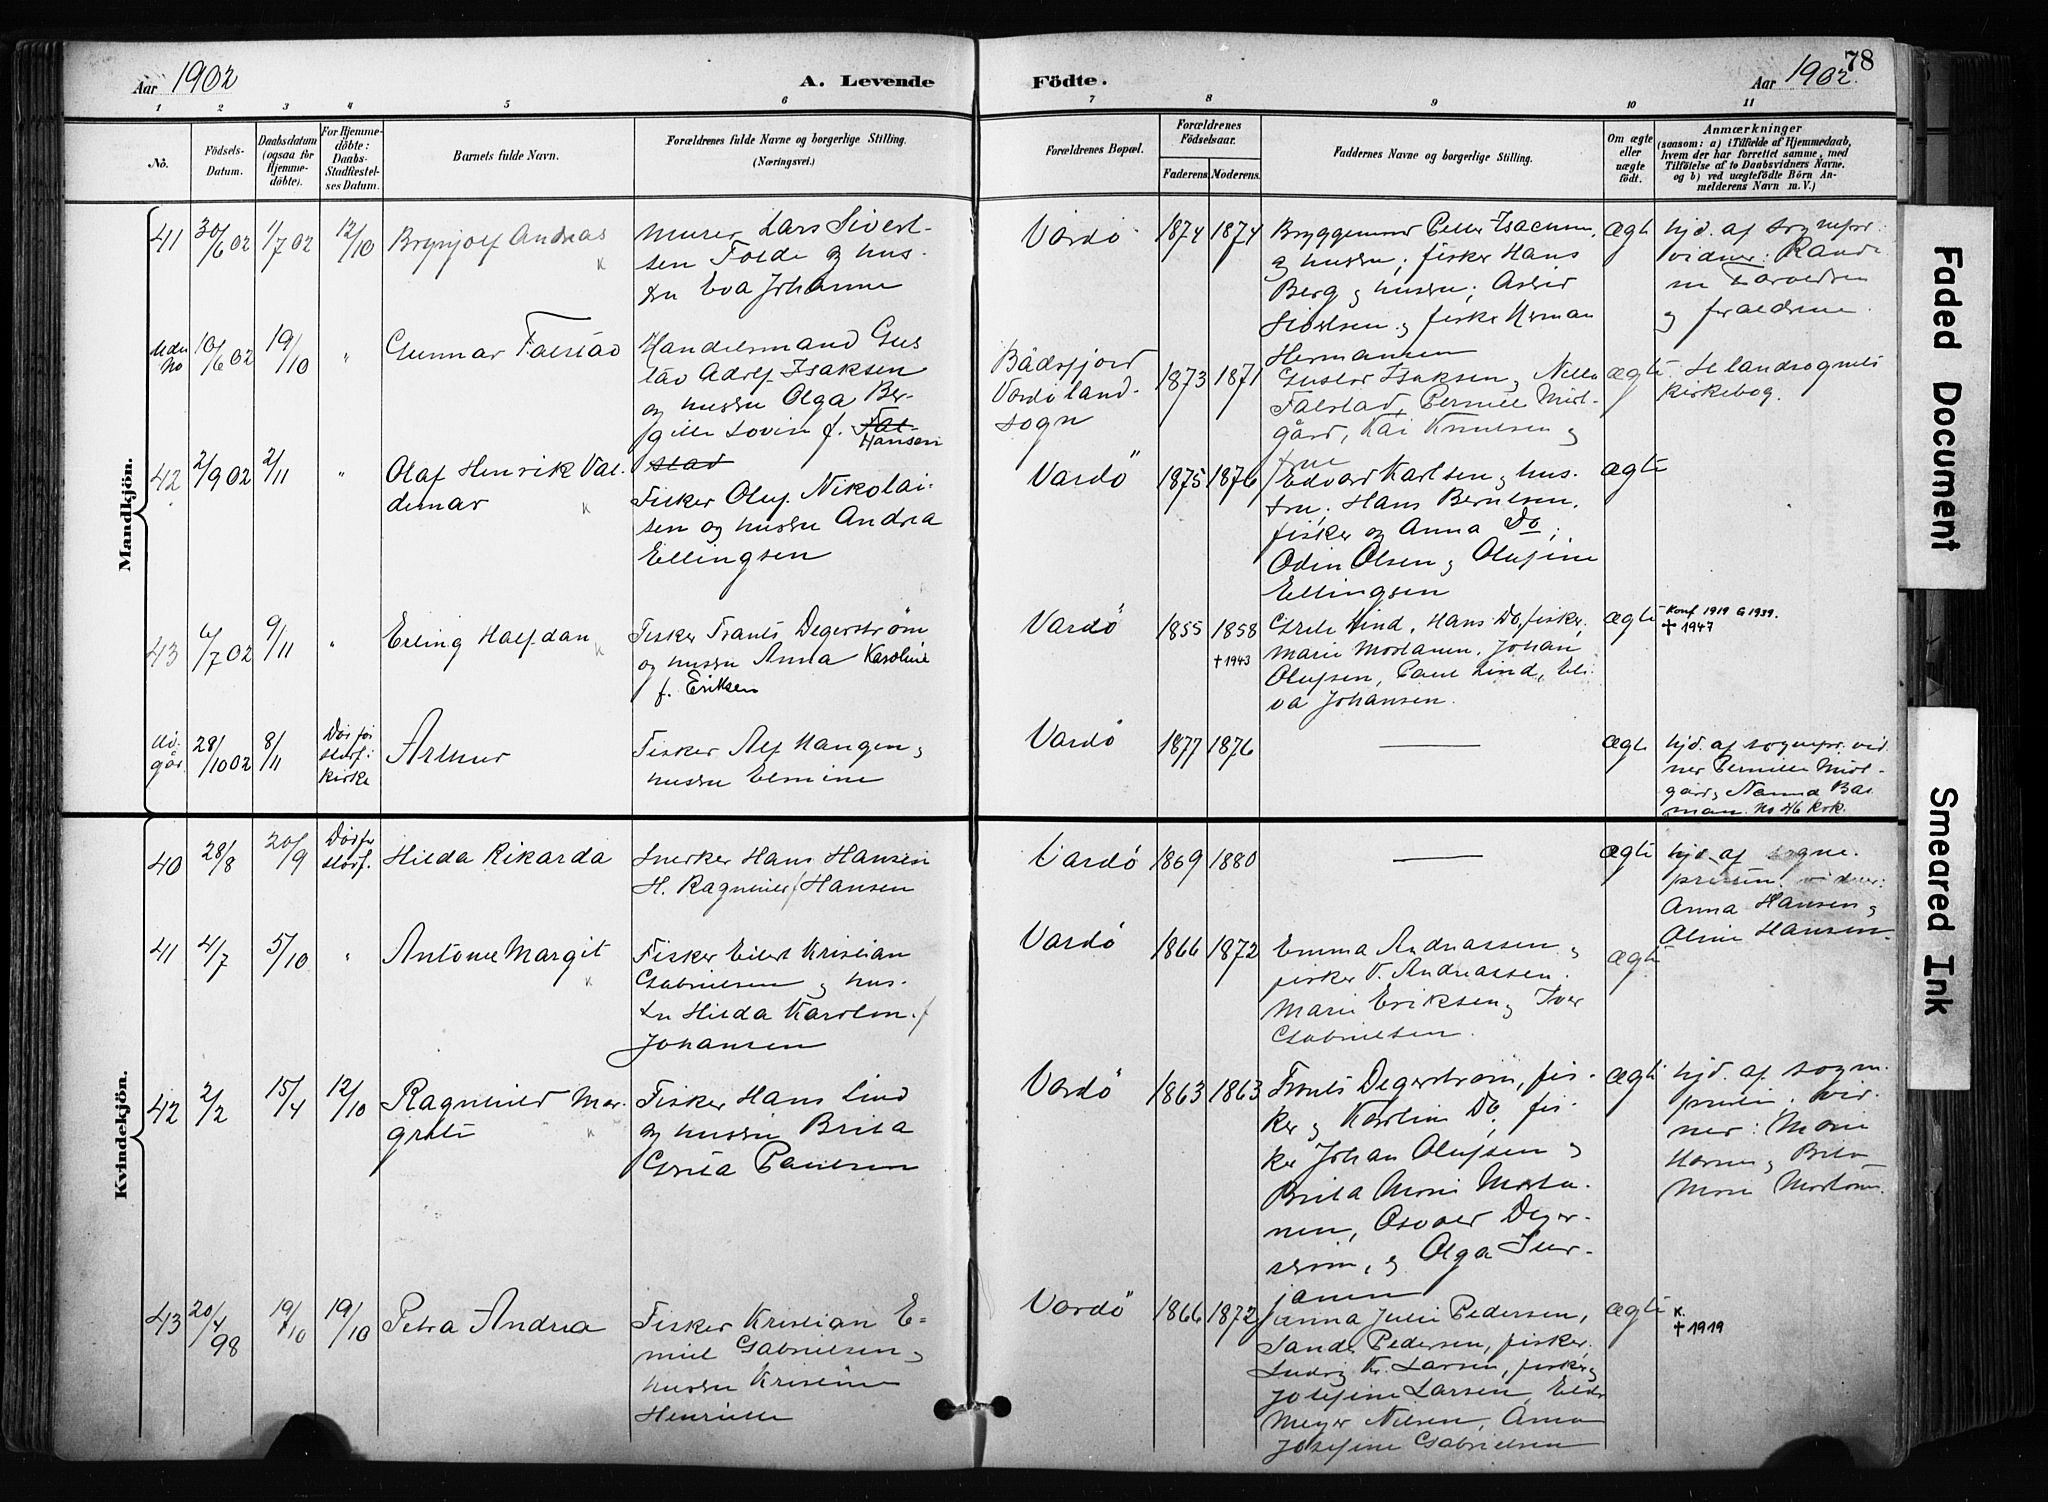 Aar 1902
A. Levende
Födte.
Aar 1902.
78
1 2 3 4 5 6 7 8 9 10 11
No.
Födsels-
Datum.
Daabsdatum
(ogsaa for
Hjemme-
döbte).
For Hjemme-
döbte:
Daabs-
Stadfæstel-
ses Datum.
Barnets fulde Navn.
Forældrenes fulde Navne og borgerlige Stilling.
(Næringsvei.)
Forældrenes Bopæl.
Forældrenes
Födselsaar.
Faderens. Moderens.
Faddernes Navne og borgerlige Stilling.
Om ægte
eller
uægte
födt.
Anmærkninger
(saasom: a) i Tilfælde af Hjemmedaab,
hvem der har forrettet samme, med
Tilföielse af to Daabsvidners Navne,
og b) ved uægtefödte Börn An-
melderens Navn m. V.)
Mandkjön.
41
30/6 02
1/7 02
12/10
Brynjolf Andreas
Murer Lars Sivert-
sen Folde og hus-
tru Eva Johanne
Vardö
1874
1874
Bryggemand Peter Isacsen
og hustru; fisker Hans
Berg og hustru;
Sivertsen og fisker Herman
Hermansen
ægte
hjd. af sognepr.
vidner:
og forældrene.
Uden
No
10/6 02
19/10
"
Gunnar Falstad
Handelsmand Gus
tav Adolf Isaksen
og hustru Olga Ber-
gitte Lovise f. Fal-
Hansen
stad
Bådsfjord
Vardö land-
sogn
1873
1871
Gustav Isaksen og
Falstad, Pernille Midt-
gård, Kai Knutsen og
frue
ægte
Se landsognets
kirkebog.
42
2/9 02
2/11
"
Olaf Henrik Val-
demar
Fisker Oluf Nikolai-
sen og hustru Andrea
Ellingsen
Vardö
1875
1876
Edvard Karlsen og hus-
tru, Hans Berntsen,
fisker og Anna Do;
Odin Olsen og Olufine
Ellingsen
ægte
43
6/7 02
9/11
"
Erling Halfdan
Fisker Frants Degerström
og hustru Anna Karoline
f. Eriksen
Vardö
1855
1858
† 1943
Grete Lind, Hans Do, fisker,
Marie Mortensen, Johan
Olufsen, Paul Lind, Eli-
va Johansen.
ægte
Konf 1919 G 1939.
† 1947
28/10 02
8/11
Död før
stadf. i
kirke
Arthur
Fisker Alf Haugen og
hustru Elmine
Vardö
1877
1876
ægte
hjd. af sognepr. vid
ner Pernille Midt-
gård og Nanna
No 46 kvk.
Kvindekjön.
40
28/8
20/9
Död før
stadf.
Hilda Rikarda
Snekker Hans Hansen
H. Ragnhild f Hansen
Vardö
1869
1880
ægte
hjd. af sogne-
presten. vidner:
Anna Hansen og
Oline Hansen.
41
4/7
5/10
"
Antonie Margit
Fisker Eilert Kristian
Gabrielsen og hus-
tru Hilda Karolin. f
Johansen
Vardö
1866
1872
Emma Andreassen og
fisker V. Andreassen.
Marie Eriksen og Iver
Gabrielsen.
ægte
42
2/2
15/4
12/10
Ragnhild Mar-
grete
Fisker Hans Lind
og hustru Brita
Greta Paulsen
Vardö
1863
1863
Frants Degerström, fis-
ker og Karolin Do, fis-
ker Johan Olufsen og
Brita Marie Morten-
sen, Osvald Deger-
ström, og Olga Sten-
jansen
ægte
hjd. af sogne-
presten. vid-
ner: Marie
Hansen og Brita
Marie Mortens.
43
20/4 98
19/10
19/10
Petra Andrea
Fisker Kristian E-
mil Gabrielsen og
hustru Kristine
Henriette
Vardö
1866
1872
Anna Julie Pedersen,
Sande Pedersen, fisker,
Ludvig Kr. Larsen, fisker og
Josefine Larsen
Meyer Nilsen, Anna
Josefine Gabrielsen
ægte
K.
† 1919
Faded Document
Smeared Ink